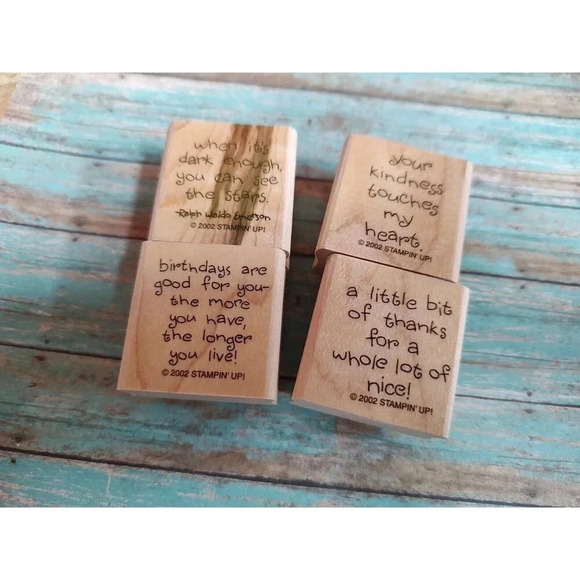 when it's
dark enough,
you can see
the stars.
-Ralph Waldo Emerson
© 2002 STAMPIN' UP!
your
kindness
touches
my
heart.
© 2002 STAMPIN' UP!
birthdays are
good for you-
the more
you have,
the longer
you live!
© 2002 STAMPIN' UP!
a little bit
of thanks
for a
whole lot of
nice!
© 2002 STAMPIN' UP!